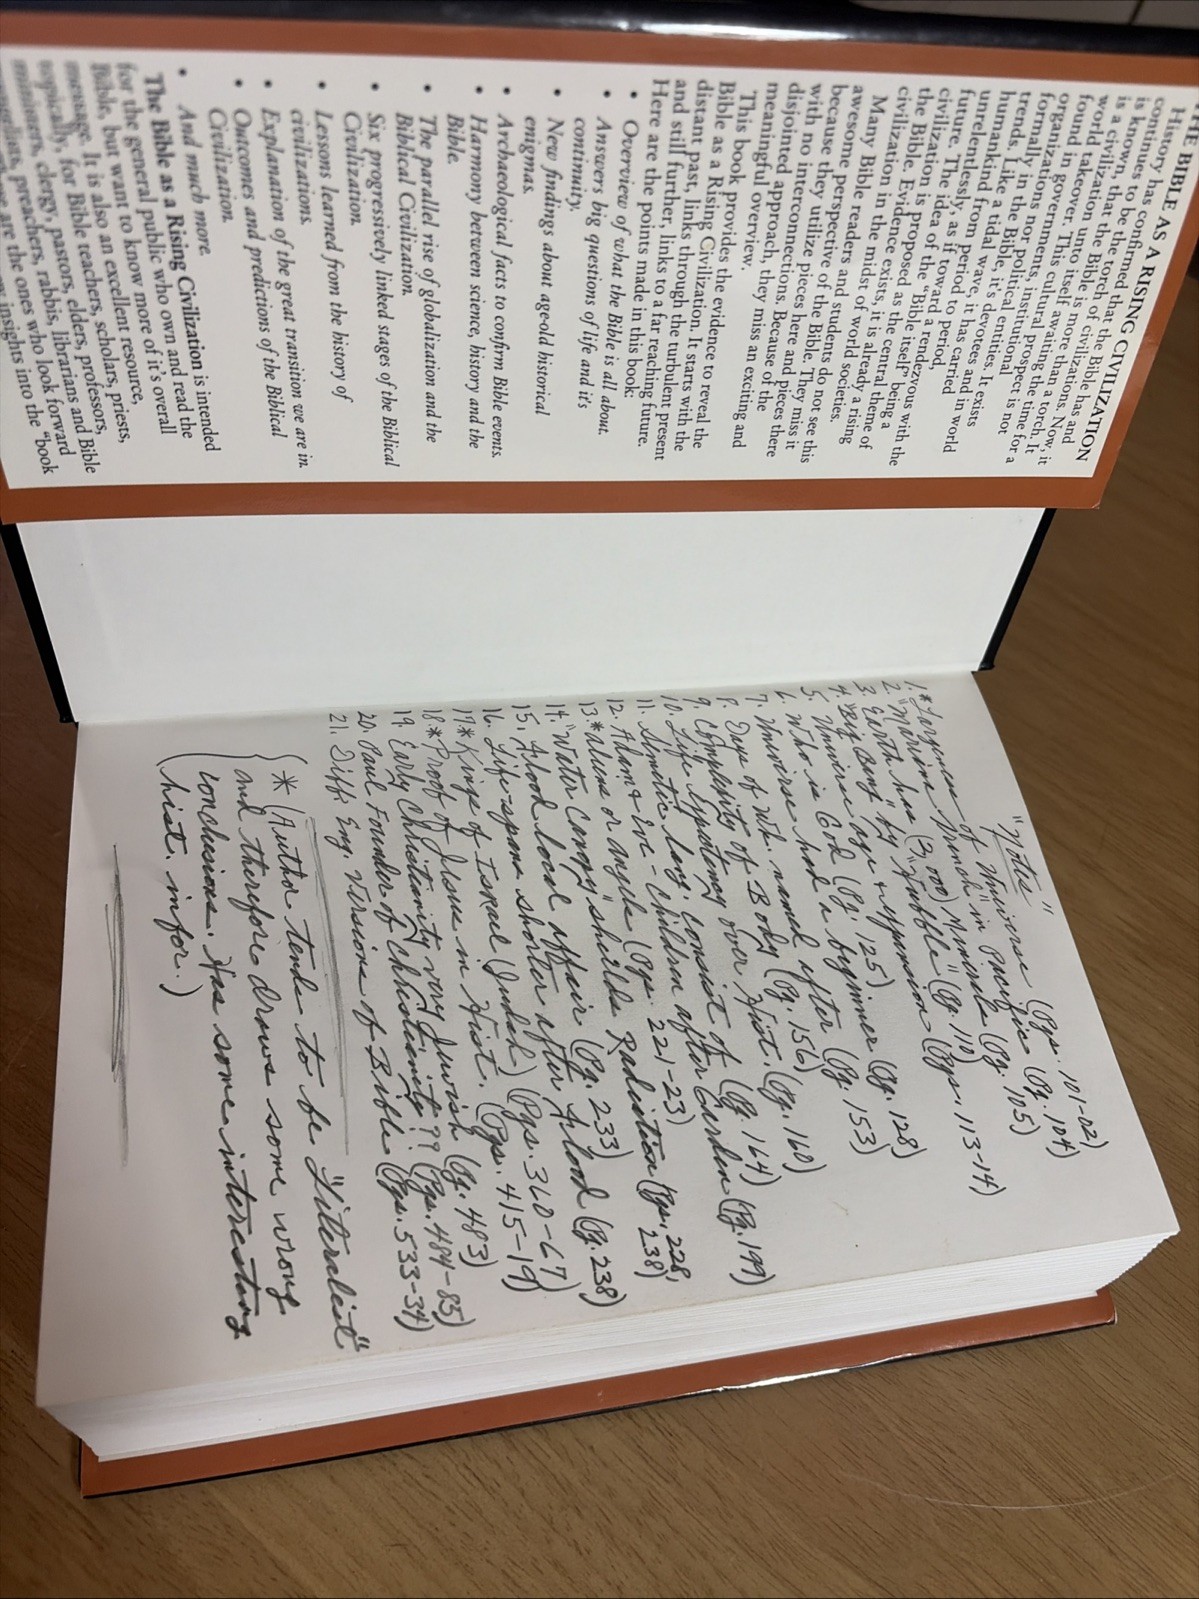 THE BIBLE AS A RISING CIVILIZATION
History has confirmed that the Bible has and
continues to be the torch of civilizations. Now, it
is known, that the Bible is awaiting the time for a
is a civilization unto itself more than a torch. It
world takeover. This cultural prospect is not
found in governments, institutional
organizations nor in the political
formally trends. Like a tidal wave, it's devotees. It exists
humankind from period to period,
unrelentlessly, as if toward a rendezvous with the
future. The idea of the "Bible itself" being a
civilization is proposed as the central theme of
the Bible. Evidence exists, it is already a rising
civilization in the midst of world societies.
Many Bible readers and students do not see this
awesome perspective of the Bible. They miss it
because they utilize pieces here and pieces there
with no interconnections. Because of the
disjointed approach, they miss an exciting and
meaningful overview.
This book provides the evidence to reveal the
Bible as a Rising Civilization. It starts with the
distant past, links through the turbulent present
and still further, links to a far reaching future.
Here are the points made in this book:
• Overview of what the Bible is all about.
• Answers big questions of life and it's
continuity.
• New findings about age-old historical
enigmas.
• Archaeological facts to confirm Bible events.
• Harmony between science, history and the
Bible.
• The parallel rise of globalization and the
Biblical Civilization.
• Six progressively linked stages of the Biblical
Civilization.
• Lessons learned from the history of
civilizations.
• Explanation of the great transition we are in.
• Outcomes and predictions of the Biblical
Civilization.
• And much more.
The Bible as a Rising Civilization is intended
for the general public who own and read the
Bible, but want to know more of it's overall
message. It is also an excellent resource,
topically, for Bible teachers, scholars, priests,
ministers, clergy, pastors, elders, professors,
evangelists, preachers, rabbis, librarians and Bible
are the ones who look forward
new insights into the "book
"Notes"
1.* Largeness of Universe (Pgs. 101-02)
2. "Marine Trench" in Pacific (Pg. 104)
3. Earth has (3,000) Minerals (Pg. 105)
4. "Big Bang" by "Hubble" (Pg. 110)
5. Universe age & expansion (Pgs. 113-14)
6. Who is God (Pg. 125)
7. Universe had a beginner (Pg. 128)
8. Days of Wk. named after (Pg. 153)
9. Complexity of Body (Pg. 156)
10. Life Expectancy over Hist. (Pg. 160)
11. Semitic lang. consist of (Pg. 164)
12. Adam & Eve - Children after Garden (Pg. 199)
13.* Aliens or angels (Pgs. 221-23)
14. "Water Canopy" shields Radiation (Pgs. 228, 238)
15. Flood local affair (Pg. 233)
16. Life-spans shorter after Flood (Pg. 238)
17.* Kings of Israel (Judah) (Pgs. 360-67)
18.* Proof of Jesus in Hist. (Pgs. 415-19)
19. Early Christianity very Jewish (Pg. 483)
20. Paul Founder of Christianity?? (Pgs. 484-85)
21. Diff. Eng. Versions of Bible (Pgs. 533-34)
* (Author tends to be "Literalist"
and therefore draws some wrong
conclusions. Has some interesting
hist. infor.)